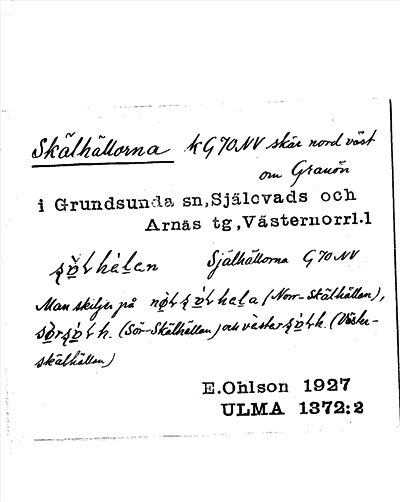 Skälhällorna k G 70 NV skär nord väst
om Granön
i Grundsunda sn, Själevads och
Arnäs tg, Västernorrl.l
Själhällorna G 70 NV
Man skiljer på (Norr-Skälhällan),
(Sör-Skälhällan) och västar (Väster-
skälhällan)
E.Ohlson 1927
ULMA 1372:2